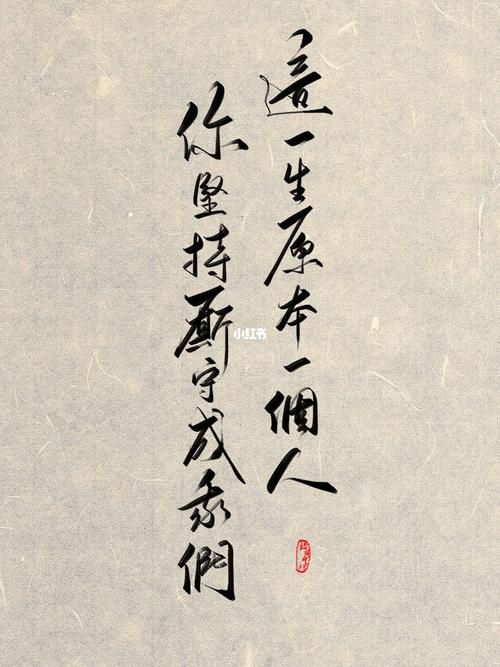 這一生原本一個人
你堅持廝守成我們
小红书